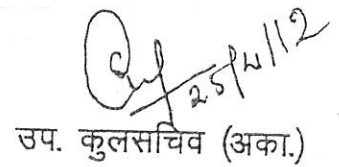 25/4/12
उप. कुलसचिव (अका.)